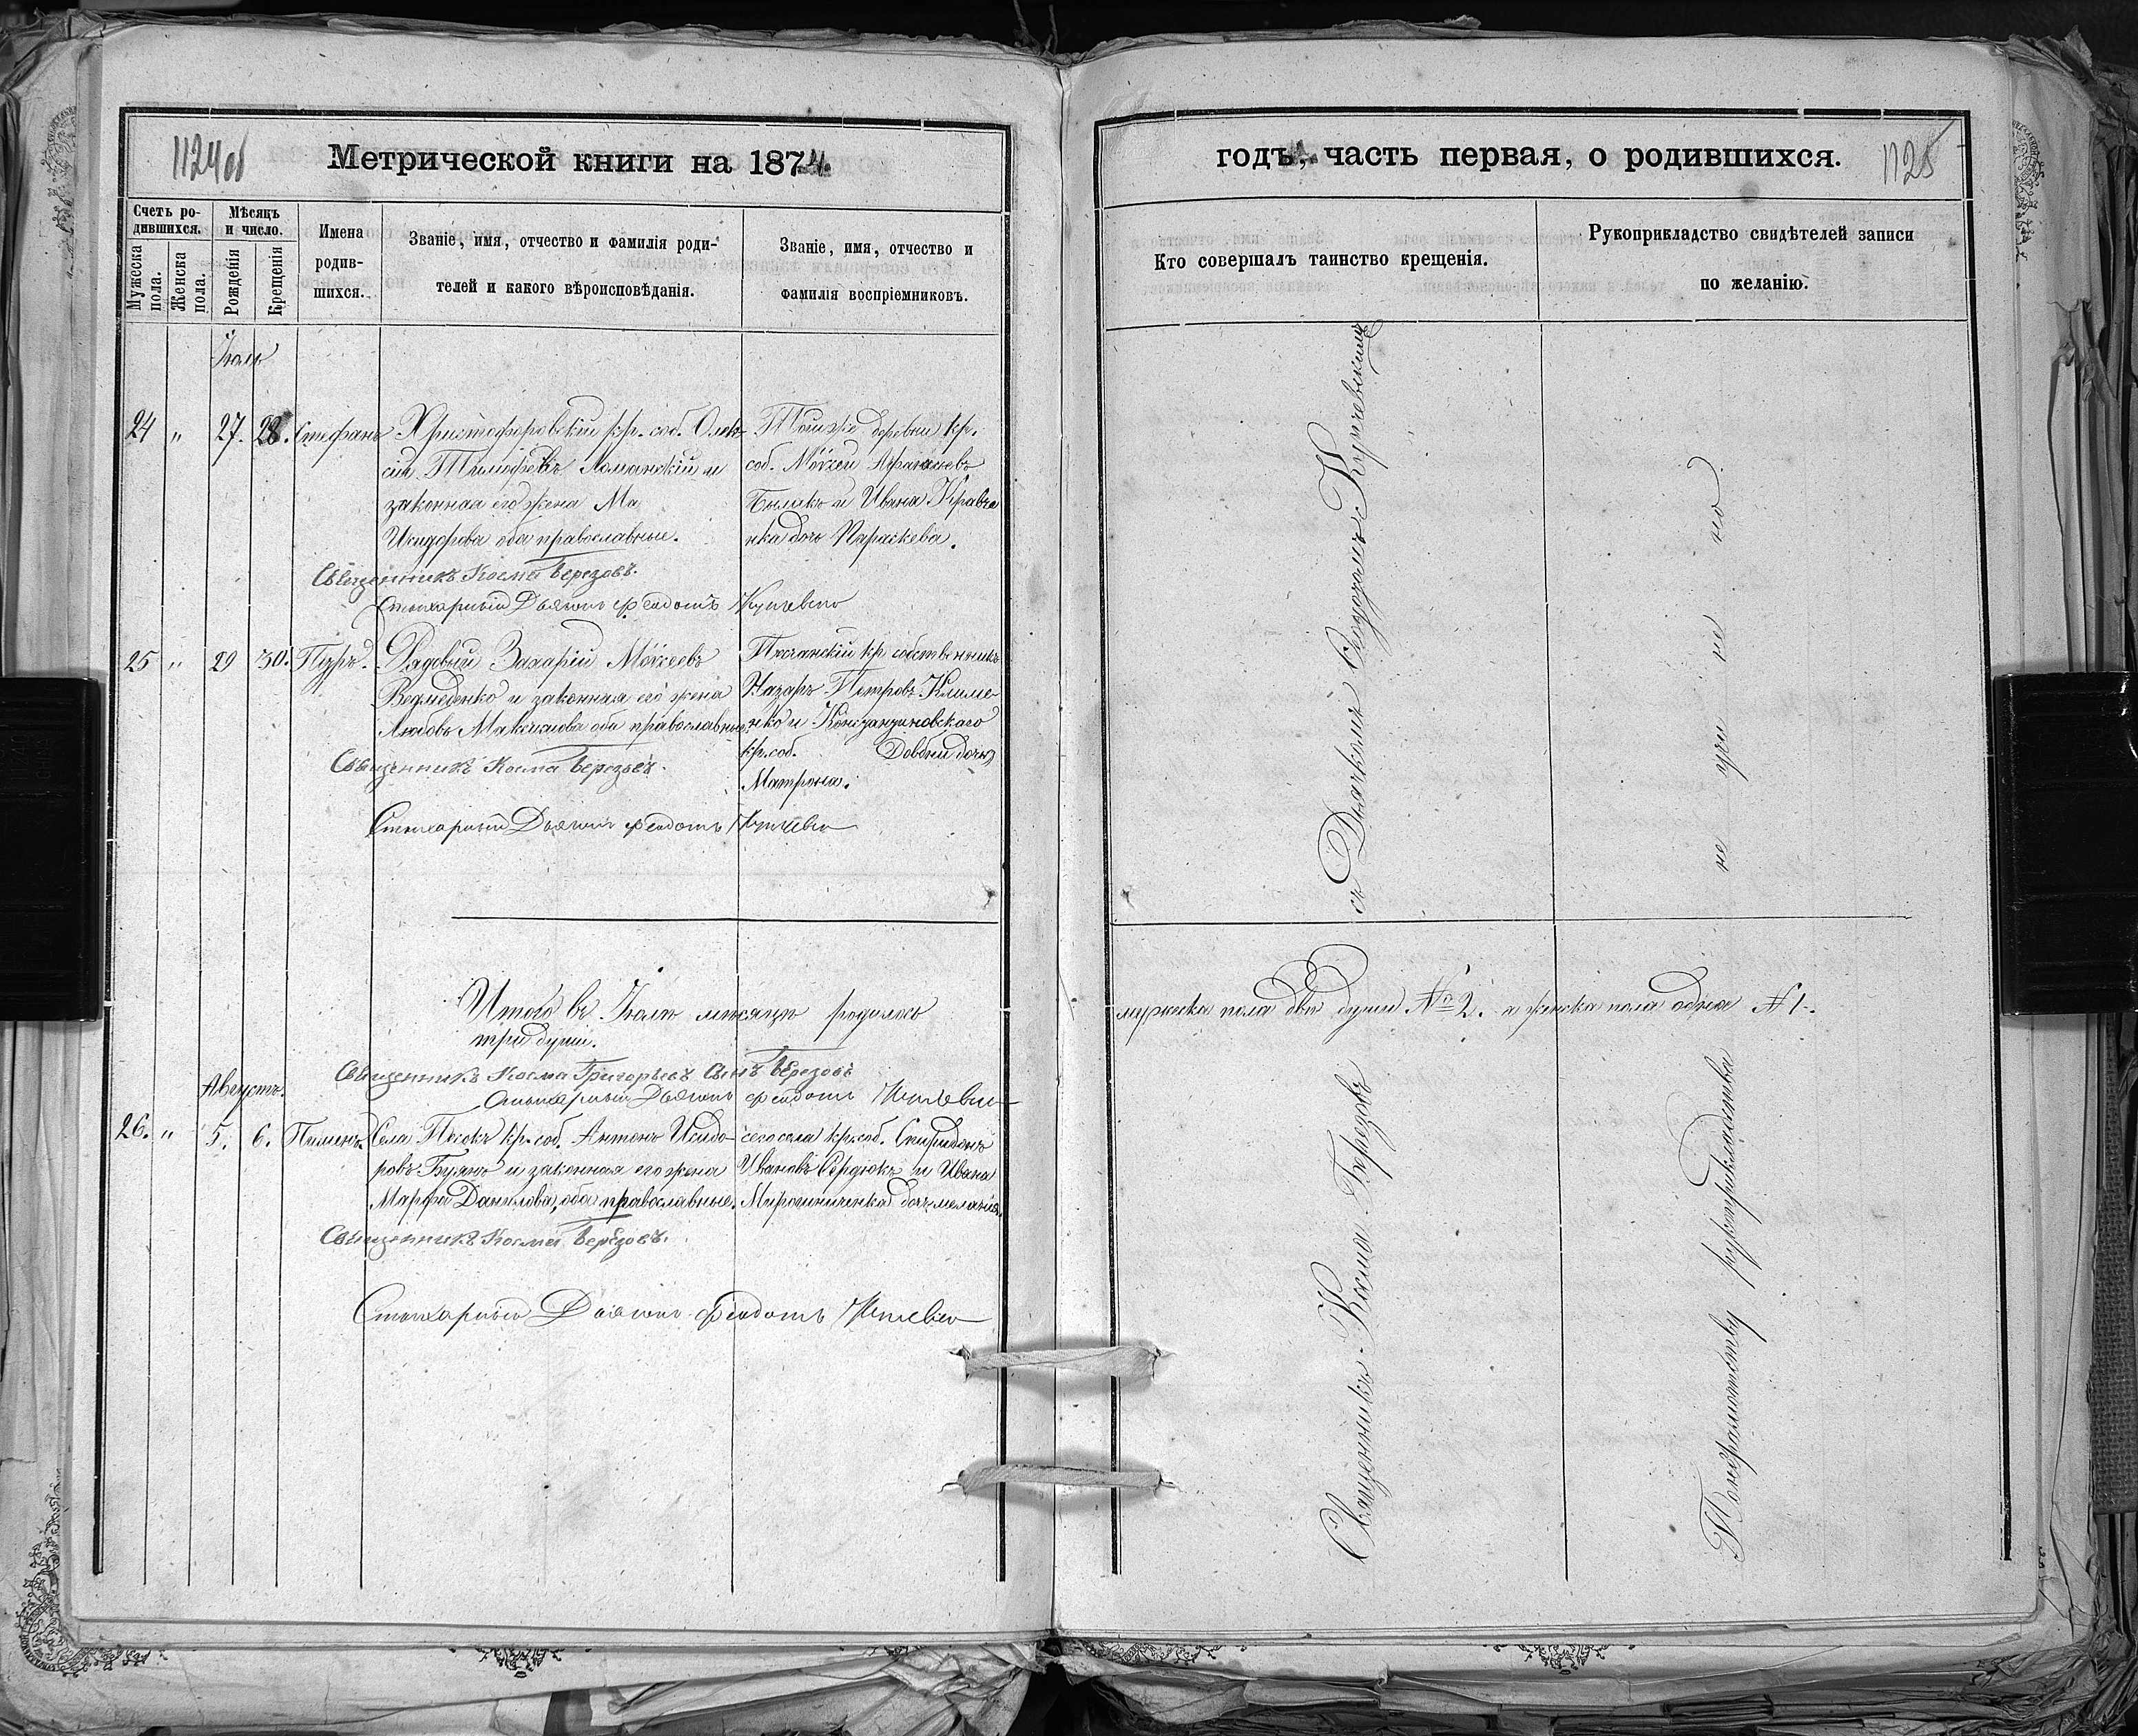 1124об
Метрической книги на 1874.
Счетъ ро-
дившихся.
Мужеска
пола.
Женска
пола.
Мѣсяцъ
и число.
Рожденія
Крещенія
Имена
родив-
шихся.
Званіе, имя, отчество и фамилія роди-
телей и какого вѣроисповѣданія.
Званіе, имя, отчество и
фамилія воспріемниковъ.
Іюль
24 " 27. 28. Стефанъ
Христофоровскій кр. соб. Алек-
сій Тимофѣевъ Ломанскій и
законная его жена Ма
Исидорова оба православные.
Тойже деревни кр.
соб. Моѵсей
и Ивана Кравче
нка дочь Параскева.
Священникъ Косма Березовъ.
Стихарный Дьячокъ Феодотъ
25 " 29 30. Петръ.
Рядовый Захарій Моѵсеевъ
Ведмеденко и законная его жена
Любовь Максимова оба православные.
Песчанскій кр. собственникъ
Назаръ Петровъ Климе-
нко и Константиновскаго
кр. соб. Довбни дочь
Матрона.
Священникъ Косма Березовъ.
Стихарный Дьячокъ Феодотъ
Итого въ Іюлѣ мѣсяцѣ родилось
три души.
Священникъ Косма Григорьевъ Сынъ Березовъ
Стихарный Дьячокъ Феодотъ
Августъ.
26. " 5. 6. Пименъ.
Села Песокъ кр. соб. Антонъ Исидо-
ровъ Буянъ и законная его жена
Марфа Данилова, оба православные.
сего села кр. соб. Спиридонъ
Ивановъ Сердюкъ и Ивана
Мирошниченка дочь Меланія.
Священникъ Косма Березовъ.
Стихарный Дьячокъ Феодотъ
годъ, часть первая, о родившихся.
1125
Кто совершалъ таинство крещенія.
Рукоприкладство свидѣтелей записи
по желанію.
Священникъ Косма Березовъ съ Дьячкомъ Феодотомъ
мужеска пола двѣ души №2. а женска пола одна №1.
Рукоприкладства не учи не но